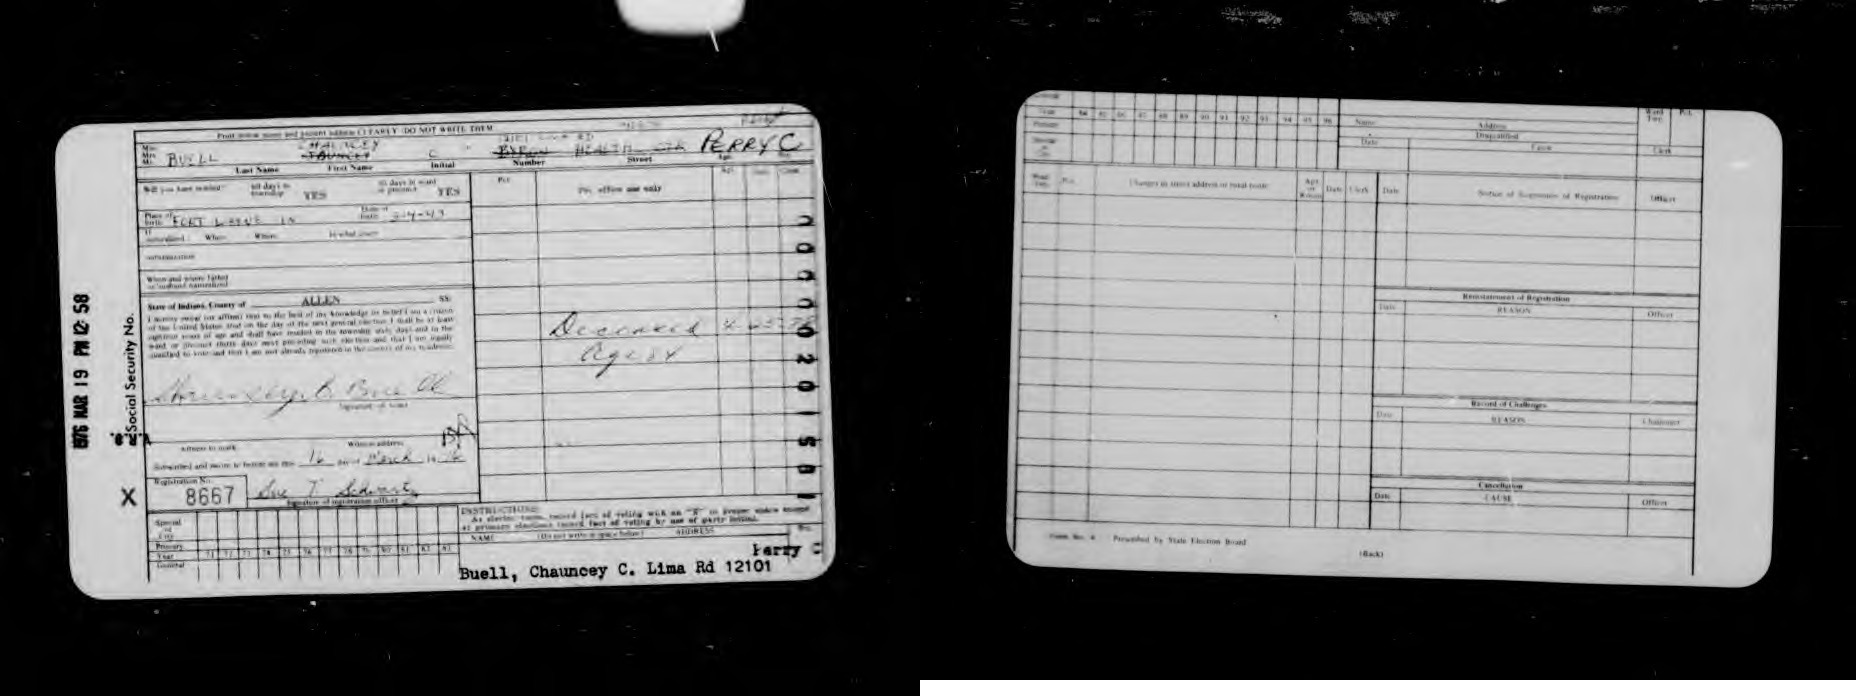 Print voter name and present address CLEARLY (DO NOT WRITE THEM
12101 LIMA RD
CHAUNCEY
Mr. BUELL C BYRON HEALTH CTR PERRY C
Last Name First Name Initial Number Street Apt.
Will you have resided: 60 days in township YES 30 days in ward or precinct YES
Pct. For office use only
Place of birth FORT WAYNE IN Date of birth
If naturalized: When Where In what court
When and where father or husband naturalized
State of Indiana, County of ALLEN SS:
I hereby swear (or affirm) that to the best of my knowledge or belief I am a citizen
of the United States that on the day of the next general election I shall be at least
eighteen years of age and shall have resided in the township sixty days and in the
ward or precinct thirty days next preceding such election and that I am legally
qualified to vote and that I am not already registered in the county of my residence.
Deceased
Age 84
Signature of voter
Witness to mark Witness address
Subscribed and sworn to before me this 16 day of March 19 76
Registration No. 8667 Sue T. Schwartz
Signature of registration officer
1976 MAR 19 PM 12 58
Social Security No.
V.R.B.
X
Special or City
Primary
Year 71 72 73 74 75 76 77 78 79 80 81 82 83
General
INSTRUCTIONS:
As elector votes, record fact of voting with an "X" in proper space except
at primary elections record fact of voting by use of party initial.
NAME (Do not write in space below) ADDRESS
Perry C
Buell, Chauncey C. Lima Rd 12101
Year 84 85 86 87 88 89 90 91 92 93 94 95 96
Primary
Special or City
Name Address
Disqualified
Date Cause Clerk
Ward Twp. Pct.
Ward Twp. Pct. Changes in street address or rural route Apt. or Room Date Clerk
Date Notice of Suspension of Registration Officer
Reinstatement of Registration
Date REASON Officer
Record of Challenges
Date REASON Challenger
Cancellation
Date CAUSE Officer
Form No. 4 Prescribed by State Election Board
(Back)